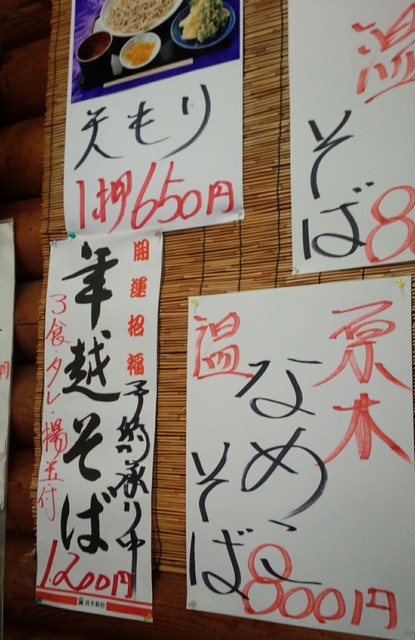 天もり
1枚650円
温
そば8
開運招福
予約承り中
年越そば
3食・タレ・揚玉付
1,200円
鈴木製粉
原木
なめこ
温
そば
800円
円